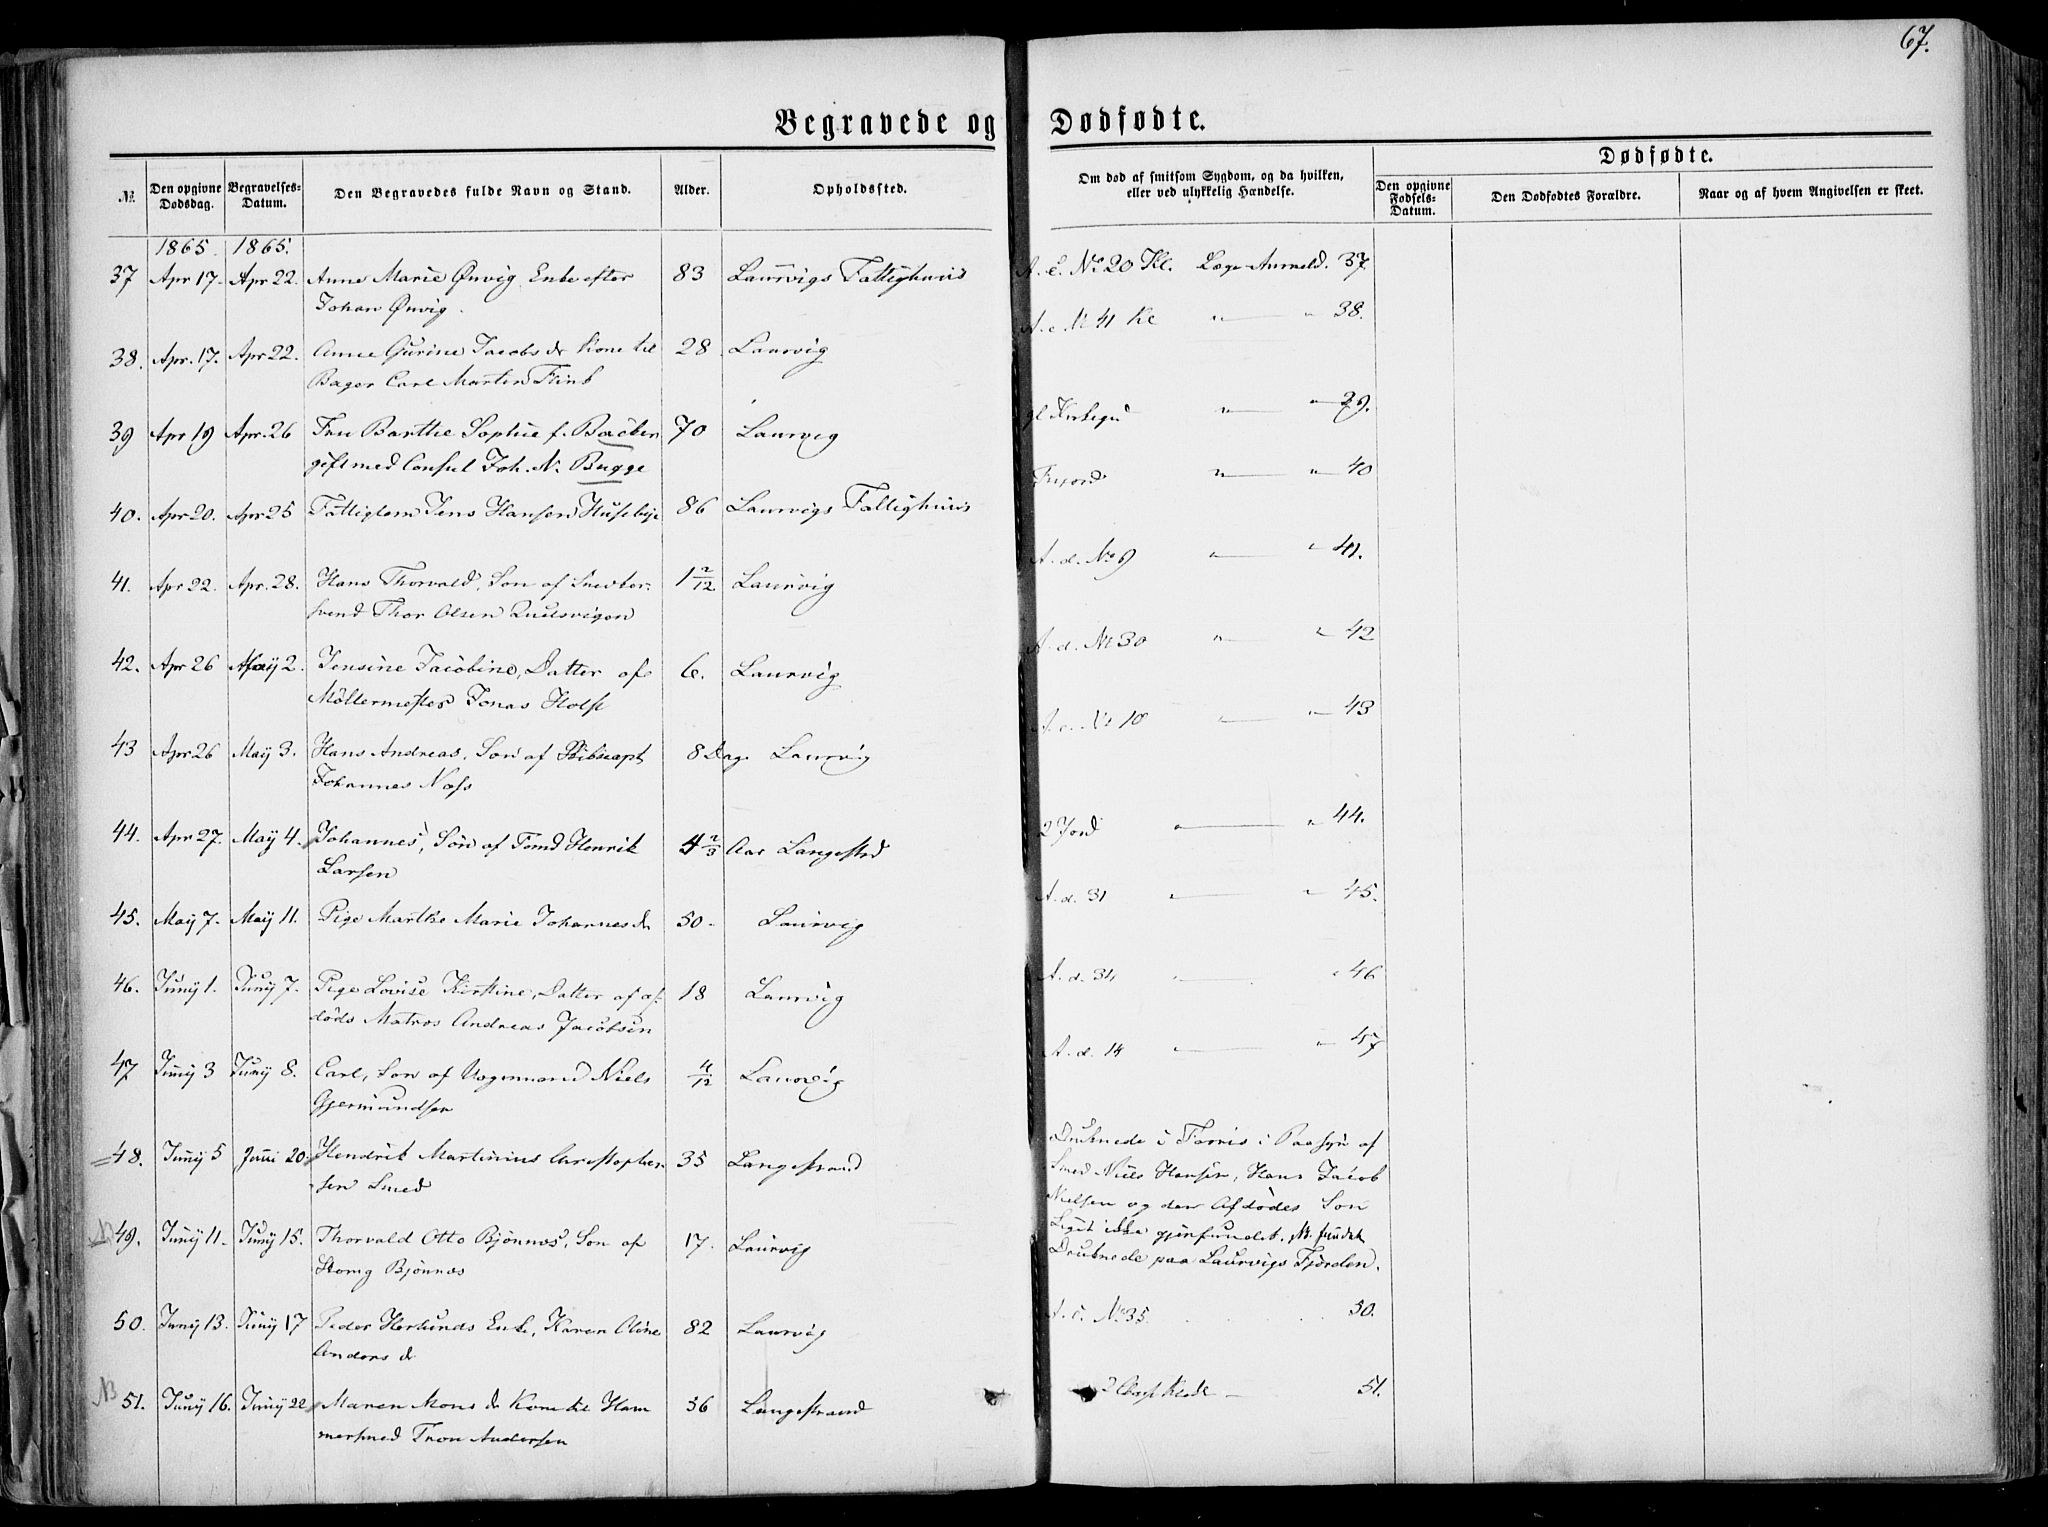 67.
Begravede og Dødfødte.
№. Den opgivne Dødsdag. Begravelses-Datum. Den Begravedes fulde Navn og Stand. Alder. Opholdssted. Om død af smitsom Sygdom, og da hvilken, eller ved ulykkelig Hændelse. Dødfødte. Den opgivne Fødsels-Datum. Den Dødfødtes Forældre. Naar og af hvem Angivelsen er skeet.
1865. 1865.
37 Apr 17. Apr 22. Anne Marie Ønvig Enke efter 83 Laurvigs Fattighuus A. c. No 20 Kl. Læge Anmeld. 37
Johan Ønvig.
38. Apr. 17. Apr 22. Anne Gurine Jacobsdr Kone til 28 Laurvig A. c. No 41 Kl " " 38.
Bager Carl Martin Flink
39 Apr 19 Apr. 26 Fru Barthe Sophie f. 70 Laurvig gl Kirkegd " " 39.
gift med Consul Joh. N. Bugge
40. Apr 20. Apr 25 Fattiglem Jens Hansen Huseby 86 Laurvigs Fattighuus " " 40
41. Apr 22. Apr. 28. Hans Thorvald, Søn af Snedker- 1 2/12 Laurvig A. d. No 9 " " 41.
svend Thor Olsen
42. Apr 26 May 2. Jensine Jacobine, Datter af 6. Laurvig A. d. No 30 " " 42
Møllermester Jonas Holst
43 Apr 26 May 3. Hans Andreas, Søn af Skibscapt 8 Dage Laurvig A. c. No 10 " " 43
Johannes Næss
44. Apr 27. May 4. Johannes, Søn af Tømd Henrik 4 2/3 Aar Langestrd 2 Jord " " 44.
Larsen
45. May 7. May 11. Pige Marthe Marie Johannesdr 50. Laurvig A. d. 31 " " 45.
46. Juny 1. Juny 7. Pige Lovise Kirstine, Datter af af- 18 Laurvig A. d. 34 " " 46
døds Matros Andreas Jacobsen
47 Juny 3 Juny 8. Carl, Søn af Vognmand Niels 4/12 Laurvig A. d. 14 " " 47
Gjermundsen
48. Juny 5 Juni 20. Hendrik Martinius Christopher- 35 Langestrand Druknede i Farris i Paasyn af
sen Smed Smed Niels Hansen, Hans Jacob
Nielsen og den Afdødes Søn
Liget ikke gjenfundet. NB. fundet
NB 49. Juny 11. Juny 15. Thorvald Otto Bjønnæs, Søn af 17. Laurvig Druknede paa Laurvigs Fjorden.
Bjønnæs
50. Juny 13. Juny 17 Peder Herlunds Enke, Karen Oline 82 Laurvig A. c. No 35. 50.
Andersdr
NB 51. Juny 16. Juny 22 Maren Monsdr Kone til Ham 36 Langestrand 2 51.
mersmed Tron Andersen